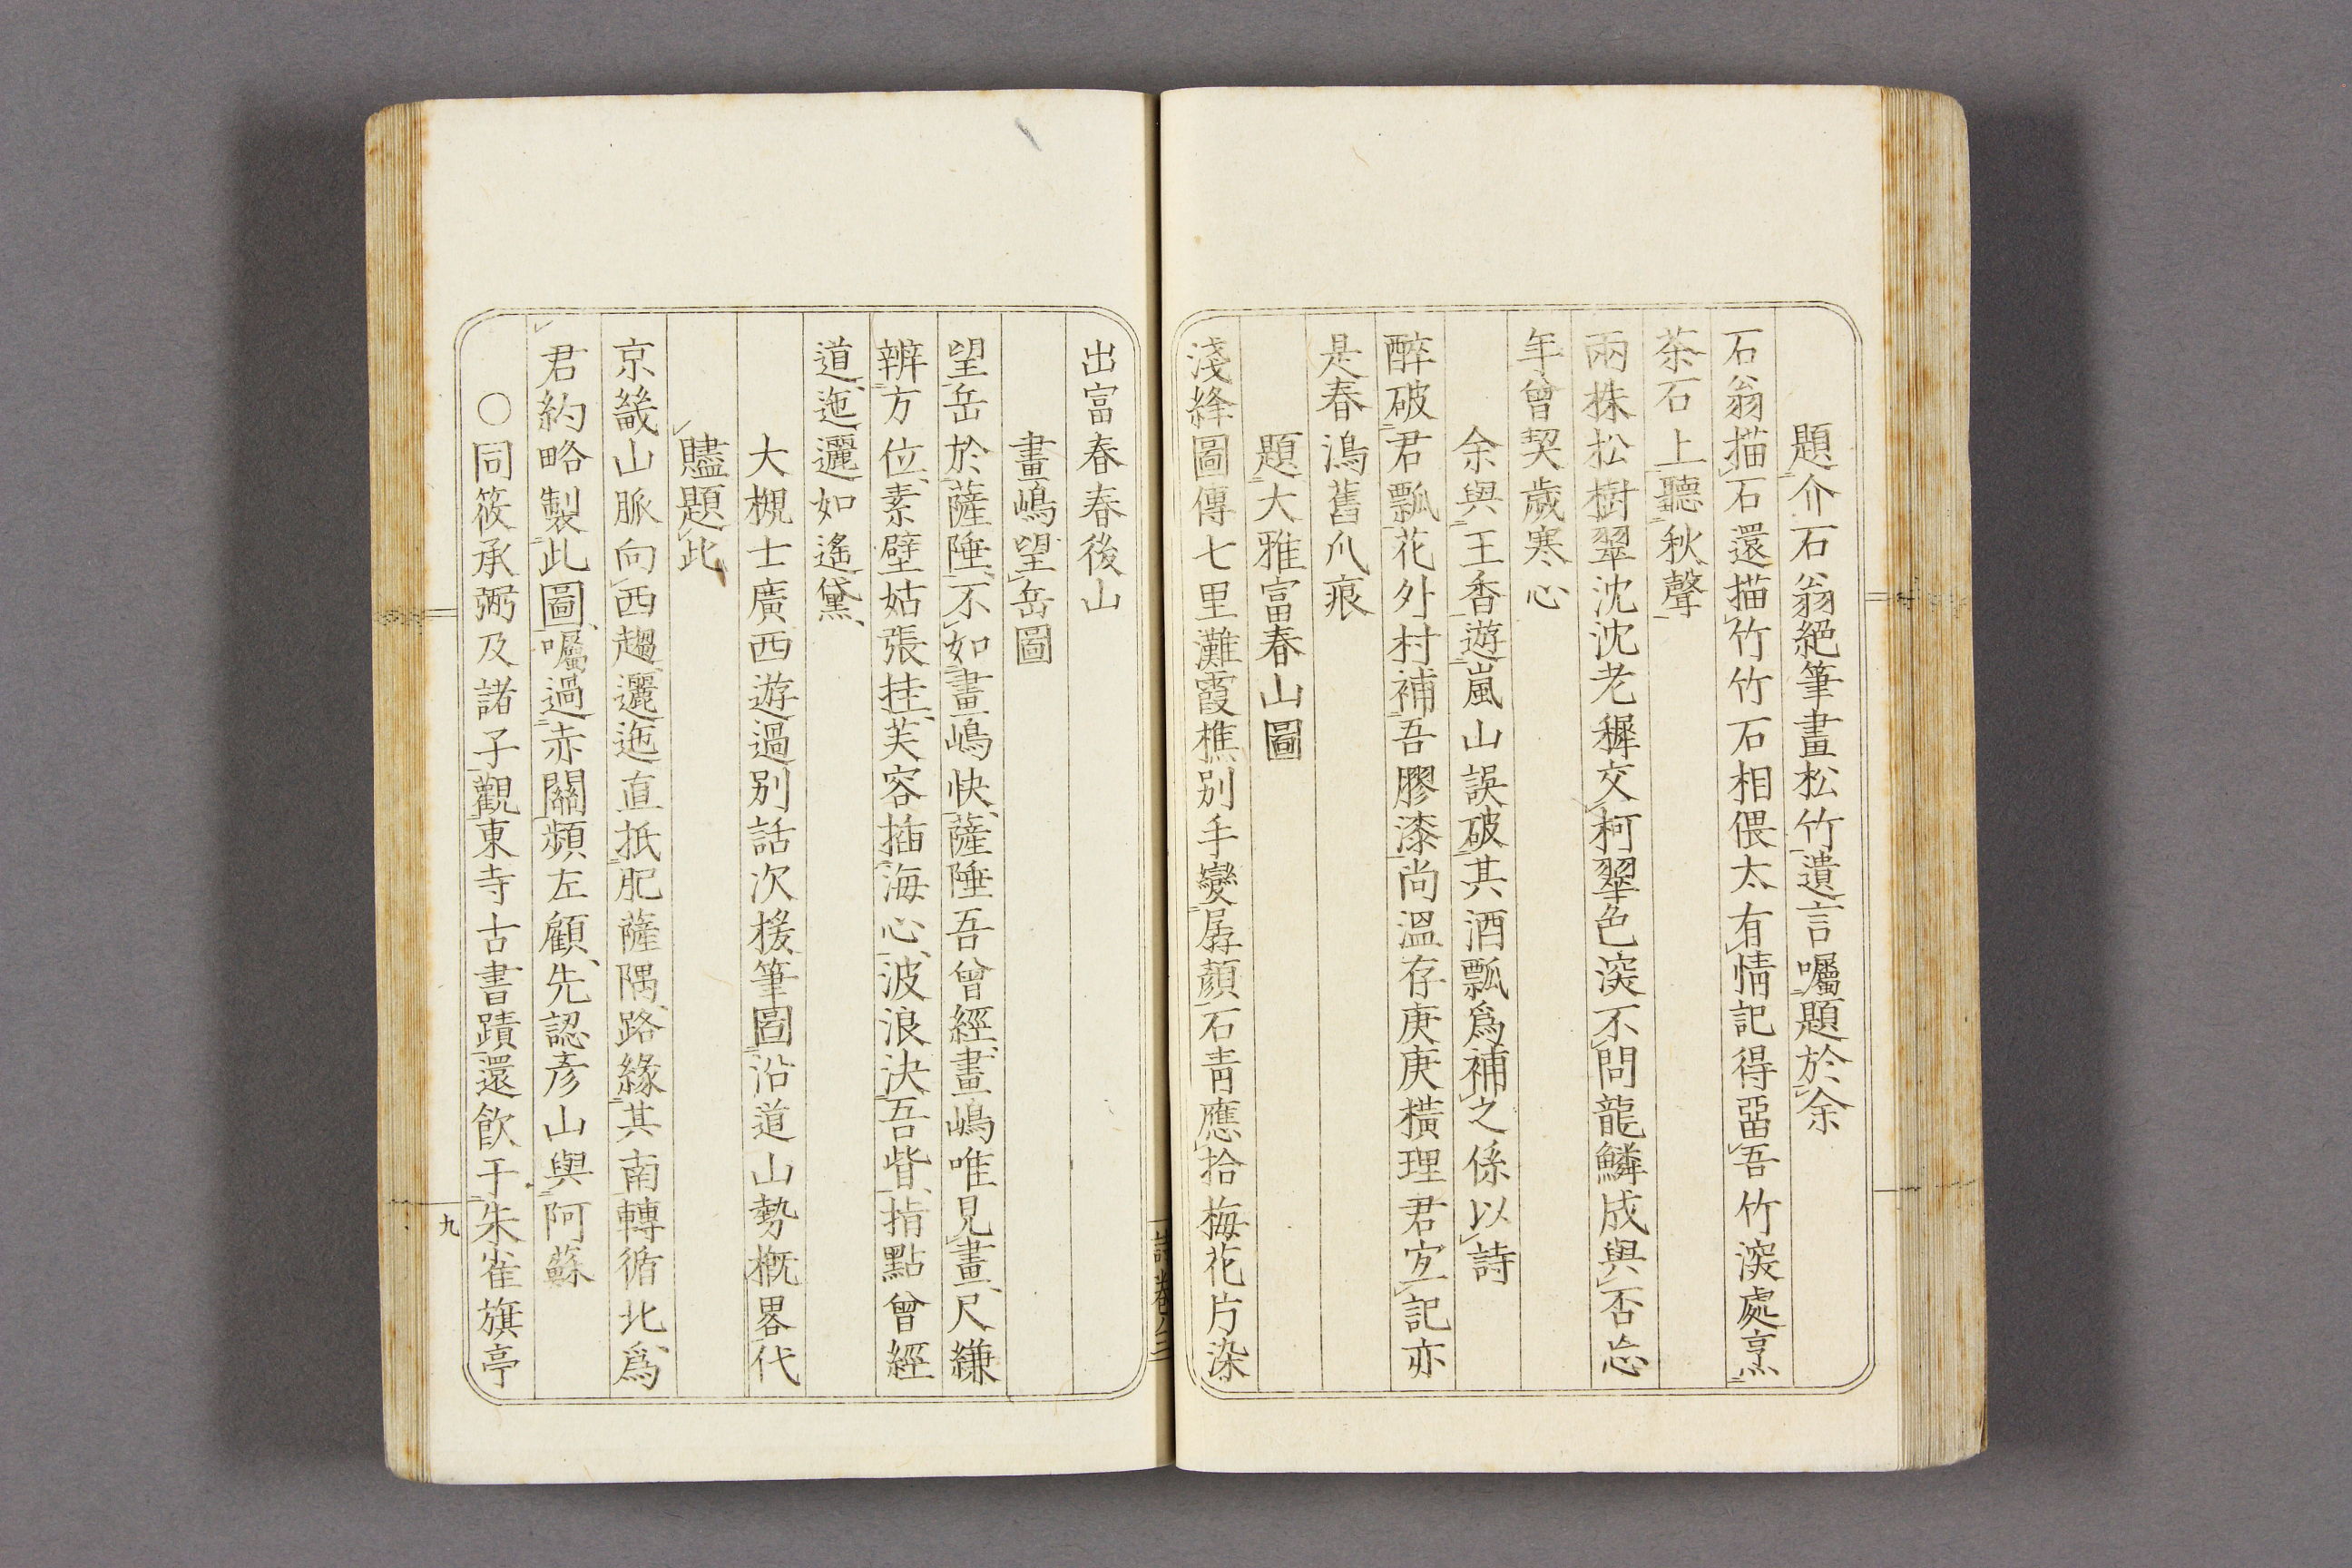 題介石翁絕筆畫松竹遺言囑題於余
石翁描石還描竹竹石相偎太有情記得畱吾竹深處烹
茶石上聽秋聲
兩株松樹翠沈沈老穉交柯翠色深不問龍鱗成與否忘
年曾契歲寒心
余與王香遊嵐山誤破其酒瓢爲補之係以詩
醉破君瓢花外村補吾膠漆尚溫存庚庚橫理君宜記亦
是春鴻舊爪痕
題大雅富春山圖
淺絳圖傳七里灘霞樵別手變孱顏石青應拾梅花片染
出富春春後山
畫嶋望岳圖
望岳於薩陲不如畫嶋快薩陲吾曾經畫嶋唯見畫尺縑
辨方位素壁姑張挂芙容插海心波浪決吾眥指點曾經
道迤邐如遙黛
大槻士廣西遊過別話次援筆圖沿道山勢概畧代
贐題此
京畿山脈向西趨邐迤直抵肥薩隅路緣其南轉循北爲
君約略製此圖囑過赤關頻左顧先認彥山與阿蘇
○同筱承弼及諸子觀東寺古書蹟還飲于朱雀旗亭
詩卷ノ三
九